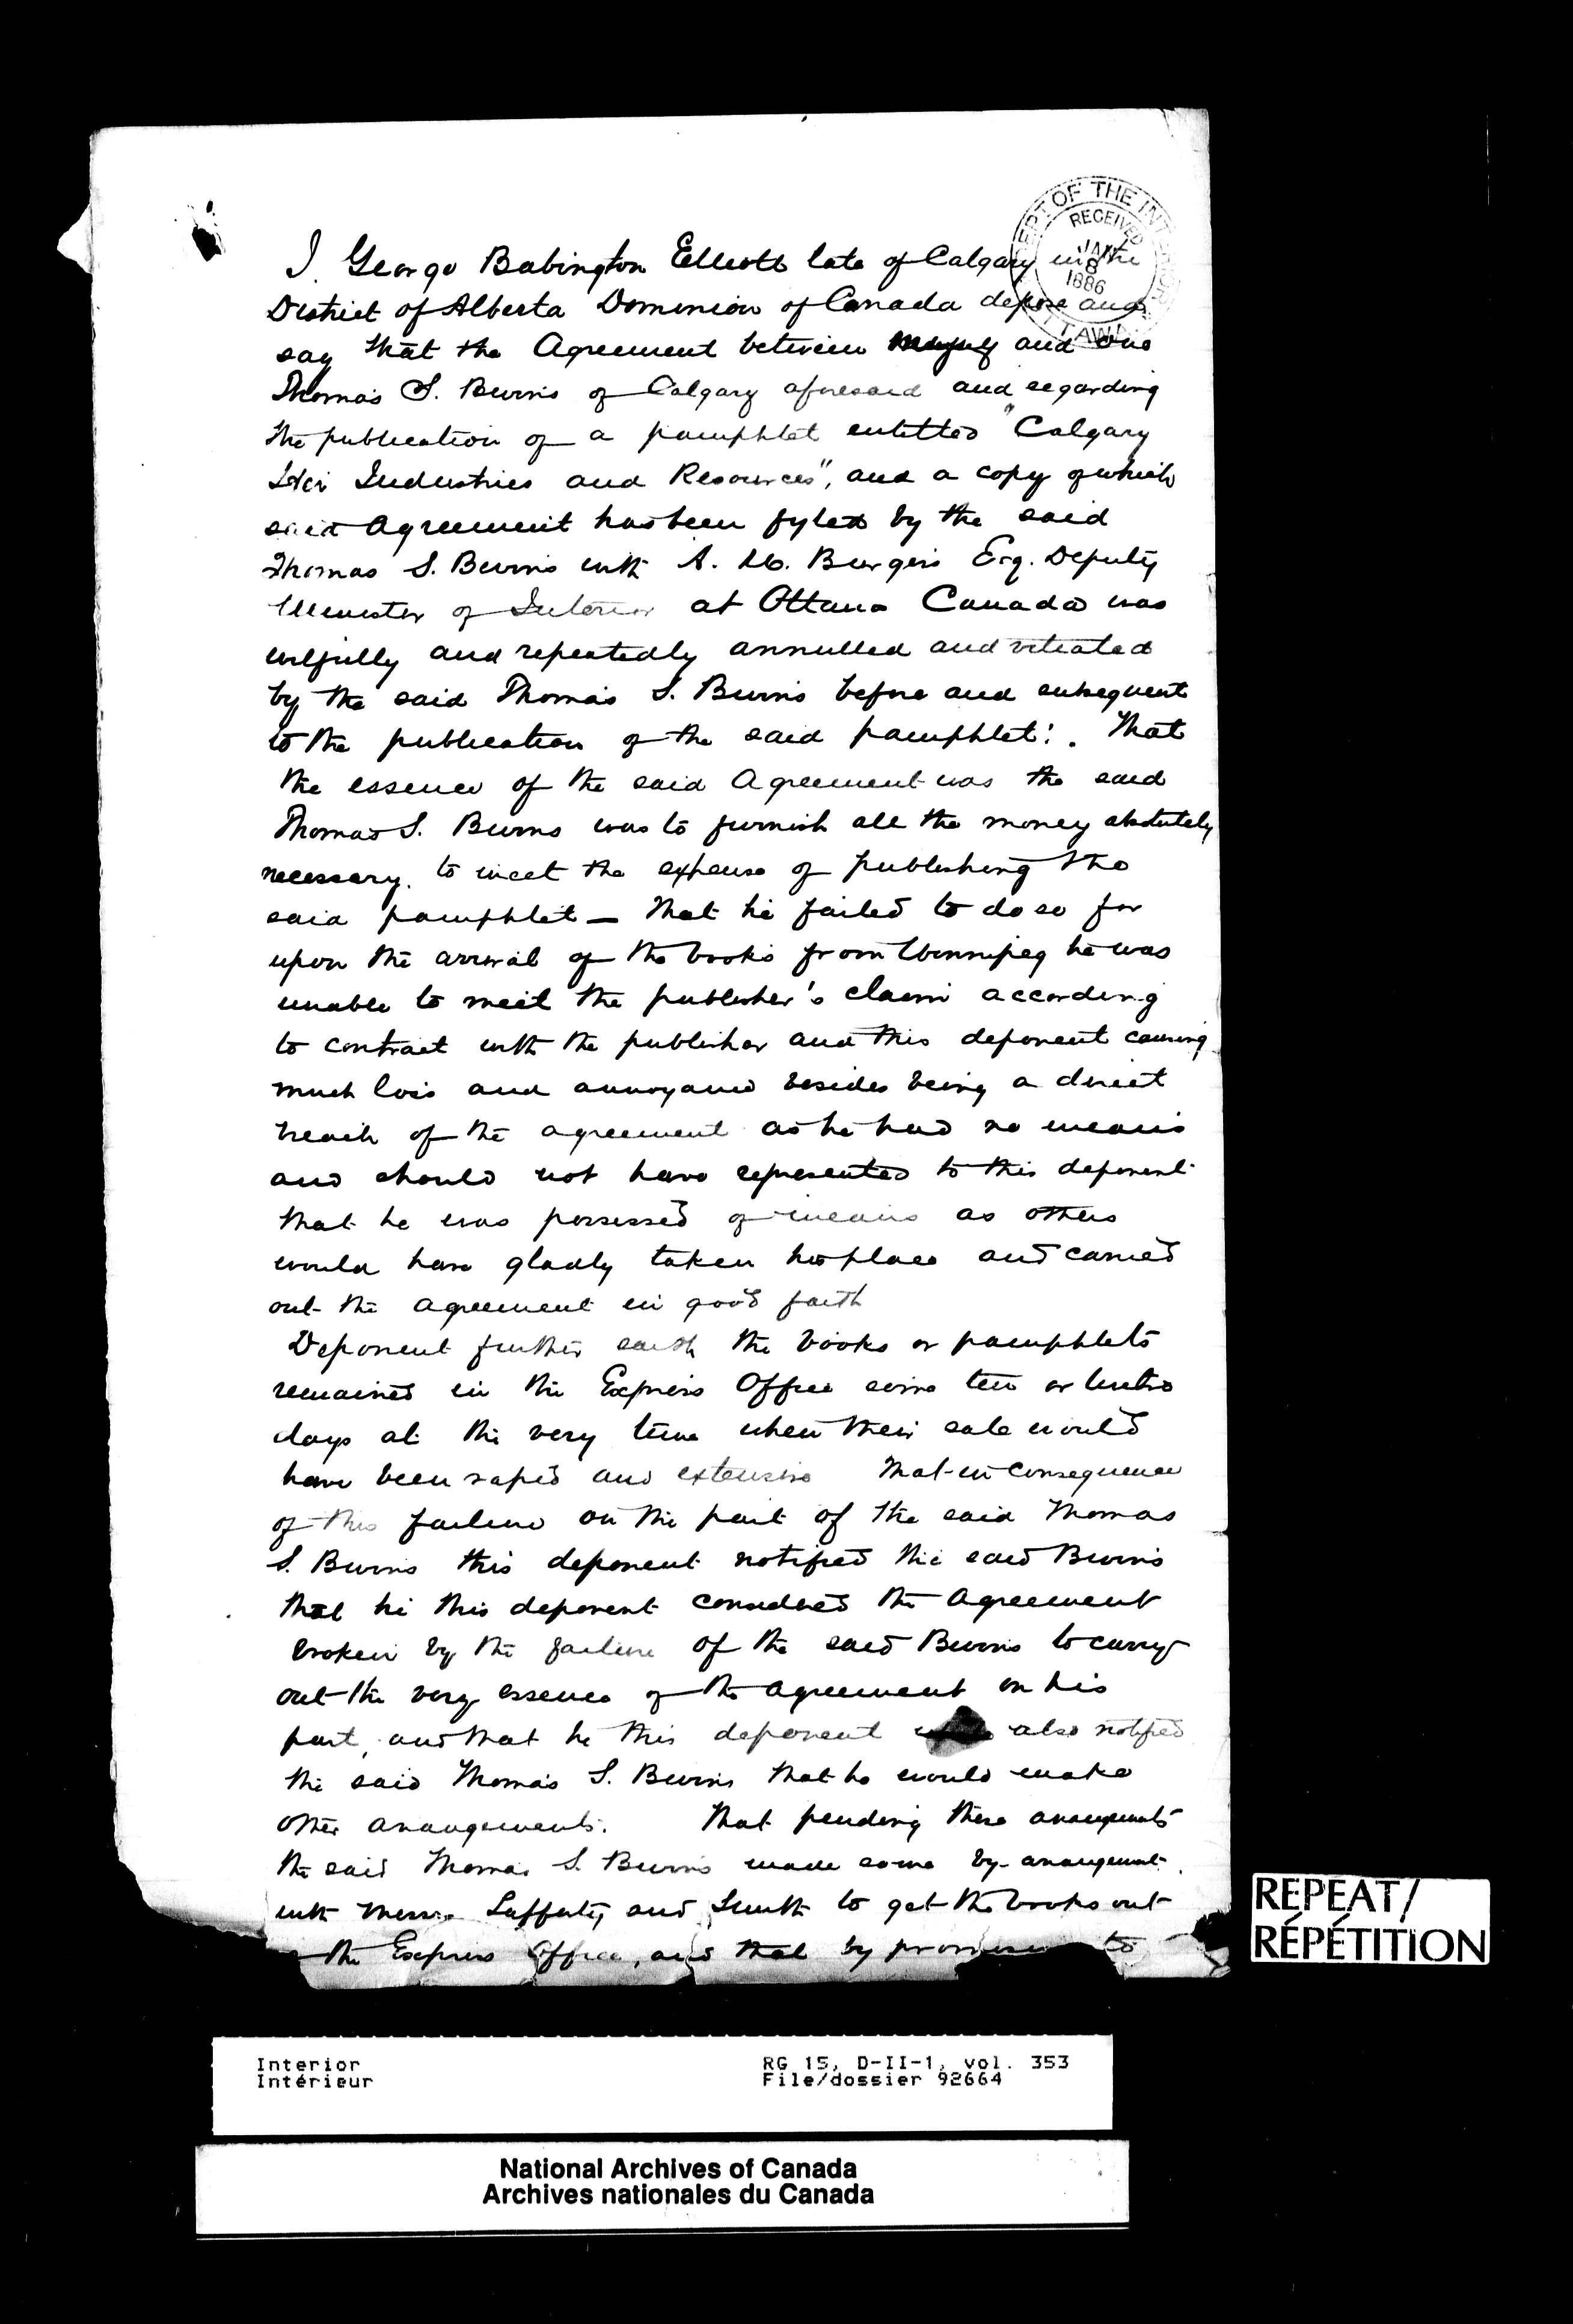 DEPT OF THE INTERIOR
RECEIVED
JAN
8
1886
OTTAWA
I George Babington Elliott late of Calgary in the
District of Alberta Dominion of Canada depose and
say that the Agreement between myself and one
Thomas S. Burns of Calgary aforesaid and regarding
the publication of a pamphlet entitled "Calgary
Her Industries and Resources", and a copy of which
said Agreement has been fyled by the said
Thomas S. Burns with A. M. Burgess Esq. Deputy
Minister of Interior at Ottawa Canada was
wilfully and repeatedly annulled and vitiated
by the said Thomas S. Burns before and subsequent
to the publication of the said pamphlet: . That
the essence of the said Agreement was the said
Thomas S. Burns was to furnish all the money absolutely
necessary. to meet the expense of publishing the
said pamphlet — that he failed to do so for
upon the arrival of the books from Winnipeg he was
unable to meet the publisher's claim according
to contract with the publisher and this deponent causing
much loss and annoyance besides being a direct
breach of the agreement as he had no means
and should not have represented to this deponent
that he was possessed of means as others
would have gladly taken his place and carried
out the agreement in good faith
Deponent further saith the books or pamphlets
remained in the Express Office some ten or twelve
days at the very time when their sale would
have been rapid and extensive That in consequence
of this failure on the part of the said Thomas
S. Burns this deponent notified the said Burns
that he this deponent considered the Agreement
broken by the failure of the said Burns to carry
out the very essence of the agreement on his
part, and that he this deponent also notified
the said Thomas S. Burns that he would make
other arrangements. That pending these arrangements
the said Thomas S. Burns made some by-arrangement
with Messrs Lafferty and Smith to get the books out
the Express Office, and that by promises to
REPEAT/
RÉPÉTITION
Interior RG 15, D-II-1, vol. 353
Intérieur File/dossier 92664
National Archives of Canada
Archives nationales du Canada